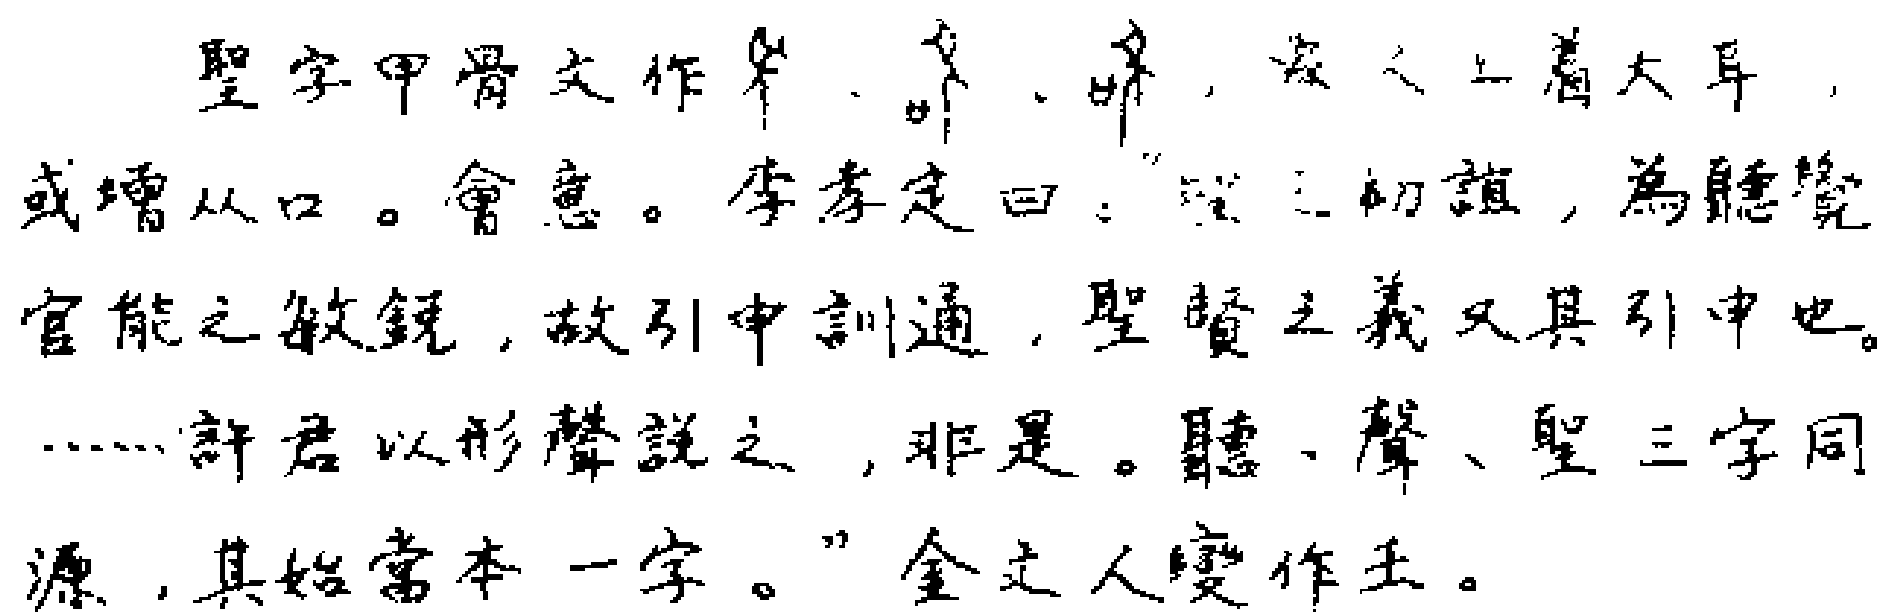 聖字甲骨文作、、，从人上着大耳，
或增从口。會意。李孝定曰："聖之初誼，為聽覺
官能之敏銳，故引申訓通，聖賢之義又其引申也。
……許君以形聲説之，非是。聽、聲、聖三字同
源，其始當本一字。"金文人變作壬。